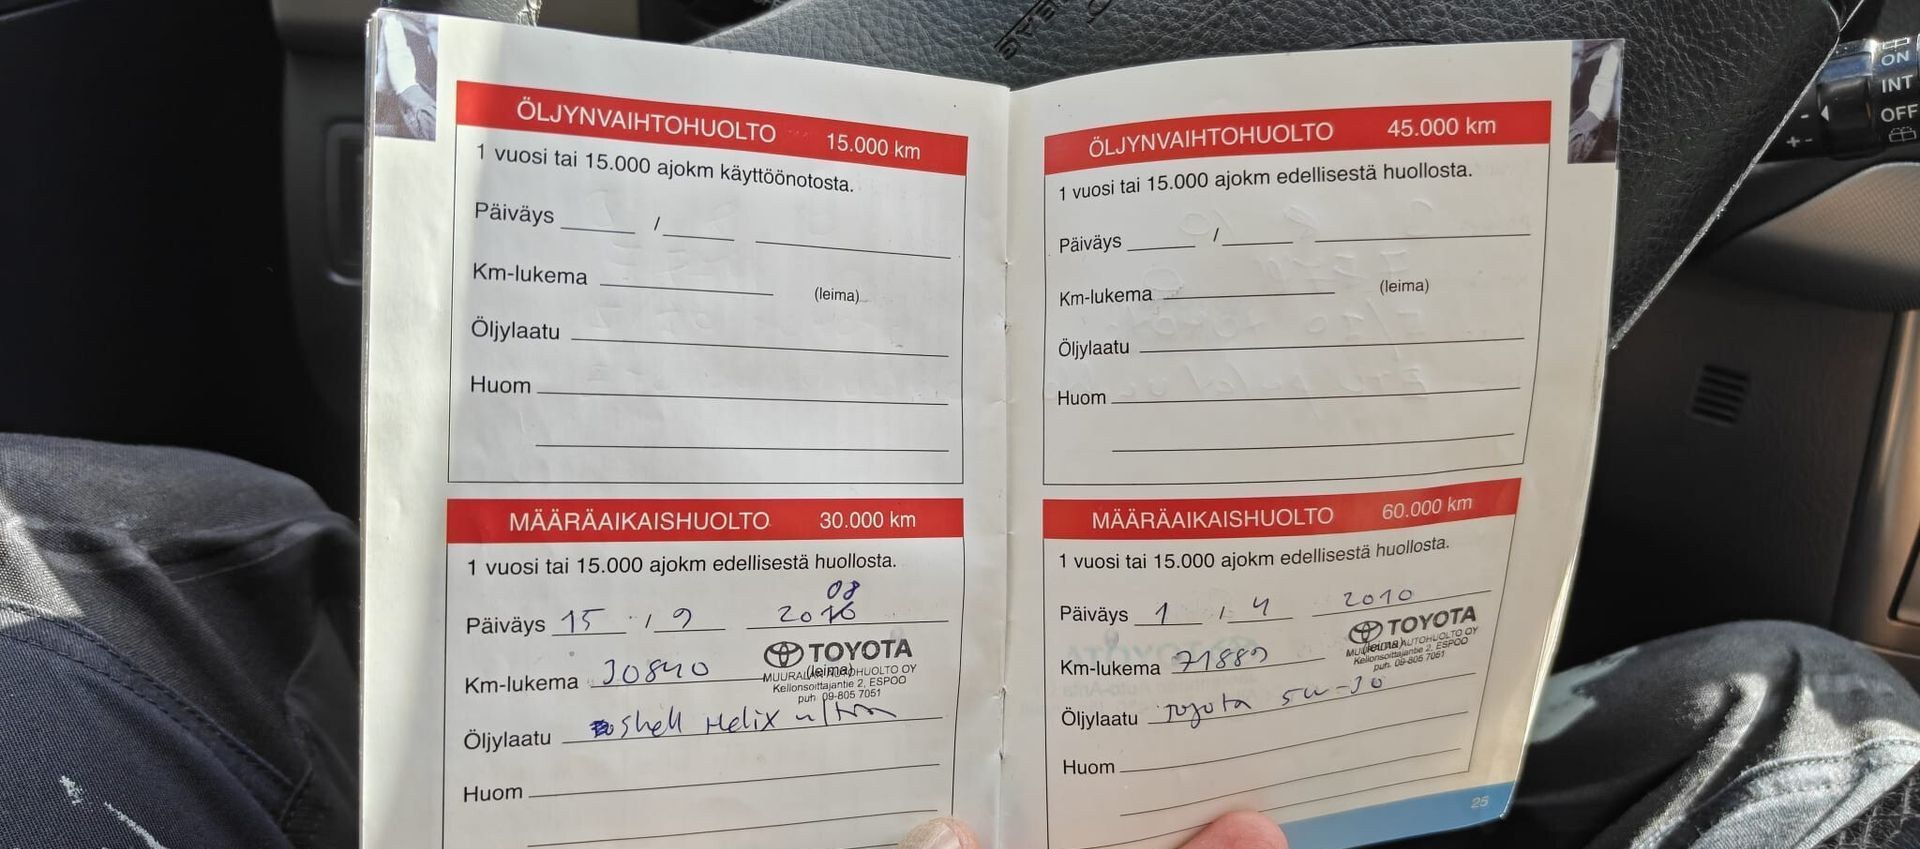 ÖLJYNVAIHTOHUOLTO 15.000 km
1 vuosi tai 15.000 ajokm käyttöönotosta.
Päiväys /
Km-lukema (leima)
Öljylaatu
Huom
MÄÄRÄAIKAISHUOLTO 30.000 km
1 vuosi tai 15.000 ajokm edellisestä huollosta.
08
Päiväys 15 / 9 2010
TOYOTA
Km-lukema 30840 (leima)
MUURALAN AUTOHUOLTO OY
Kellonsoittajantie 2, ESPOO
puh. 09-805 7051
Öljylaatu Shell Helix ultra
Huom
ÖLJYNVAIHTOHUOLTO 45.000 km
1 vuosi tai 15.000 ajokm edellisestä huollosta.
Päiväys /
Km-lukema (leima)
Öljylaatu
Huom
MÄÄRÄAIKAISHUOLTO 60.000 km
1 vuosi tai 15.000 ajokm edellisestä huollosta.
Päiväys 1 / 4 2010
TOYOTA
Km-lukema 71889 (leima)
MUURALAN AUTOHUOLTO OY
Kellonsoittajantie 2, ESPOO
puh. 09-805 7051
Öljylaatu Toyota 5w-30
Huom
25
ON
INT
OFF
- +